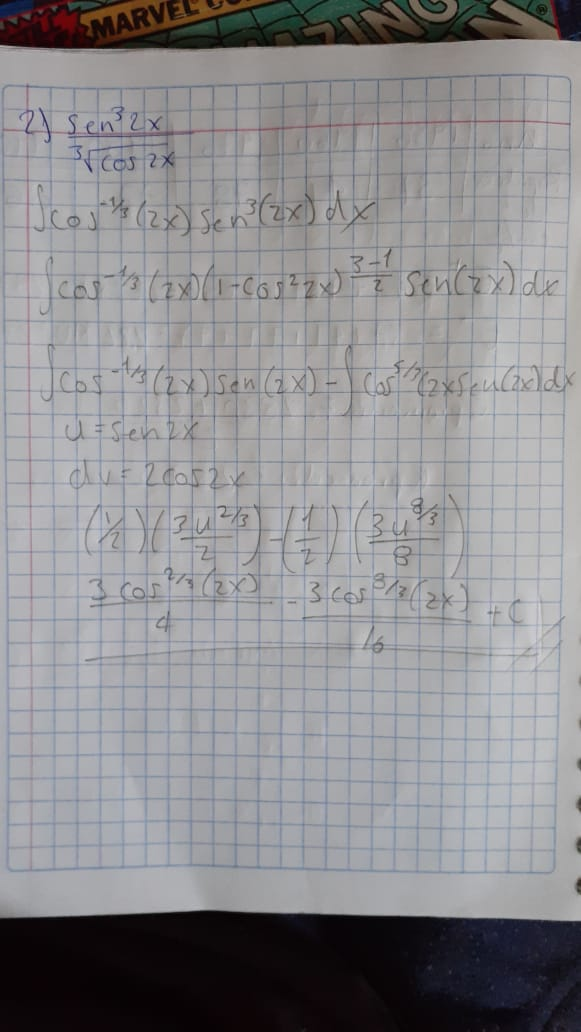 MARVEL
2) sen³2x / ³√cos 2x
∫cos^-1/3 (2x) sen³(2x) dx
∫cos^-1/3 (2x)(1-cos²2x)^(3-1)/2 sen(2x) dx
∫cos^-1/3 (2x) sen(2x) - ∫cos^5/3(2x sen(2x) dx
u = sen 2x
du = 2cos2x
(1/2)(3u^2/3 / 2) - (1/2)(3u^8/3 / 8)
3 cos^2/3 (2x) / 4 - 3 cos^8/3 (2x) / 16 + C